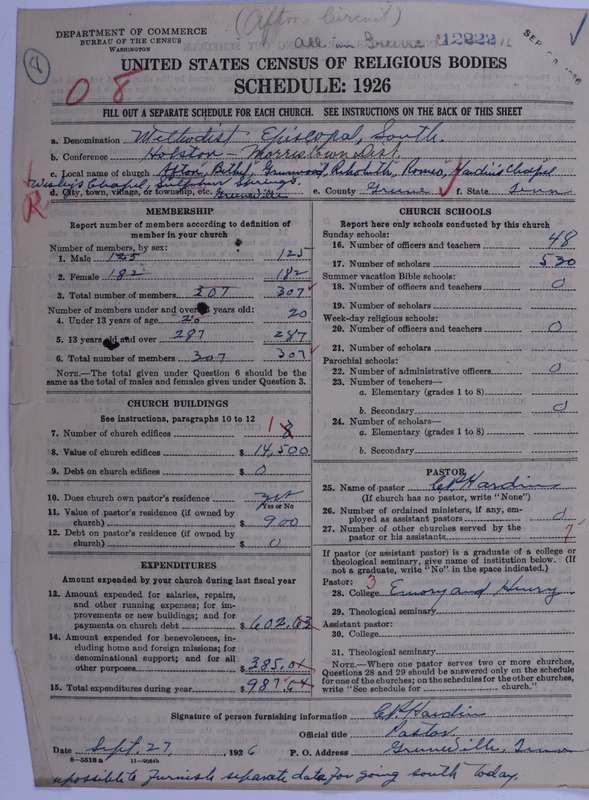 (Afton Circuit)
DEPARTMENT OF COMMERCE
BUREAU OF THE CENSUS
WASHINGTON
All in Greene
12222
SEP
UNITED STATES CENSUS OF RELIGIOUS BODIES
SCHEDULE: 1926
08
FILL OUT A SEPARATE SCHEDULE FOR EACH CHURCH. SEE INSTRUCTIONS ON THE BACK OF THIS SHEET
a. Denomination Methodist Episcopal, South.
b. Conference Holston – Morristown Dist.
c. Local name of church Afton, Bethel, Greenwood, Romeo, Hardin's Chapel
Wesley's Chapel, Sulphur Springs.
d. City, town, village, or township, etc. Greeneville e. County Greene f. State Tenn
R
MEMBERSHIP
Report number of members according to definition of member in your church
Number of members, by sex:
1. Male 125 125
2. Female 182 182
3. Total number of members 307 307
Number of members under and over 13 years old:
4. Under 13 years of age 20 20
5. 13 years old and over 287 287
6. Total number of members 307 307
NOTE.—The total given under Question 6 should be the same as the total of males and females given under Question 3.
CHURCH BUILDINGS
See instructions, paragraphs 10 to 12
7. Number of church edifices 1 8
8. Value of church edifices $ 14,500
9. Debt on church edifices $ 0
10. Does church own pastor's residence yes
Yes or No
11. Value of pastor's residence (if owned by church) $ 900
12. Debt on pastor's residence (if owned by church) $ 0
EXPENDITURES
Amount expended by your church during last fiscal year
13. Amount expended for salaries, repairs, and other running expenses; for improvements or new buildings; and for payments on church debt $ 602.63
14. Amount expended for benevolences, including home and foreign missions; for denominational support; and for all other purposes $ 385.01
15. Total expenditures during year $ 987.64
CHURCH SCHOOLS
Report here only schools conducted by this church
Sunday schools:
16. Number of officers and teachers 48
17. Number of scholars 530
Summer vacation Bible schools:
18. Number of officers and teachers 0
19. Number of scholars
Week-day religious schools:
20. Number of officers and teachers 0
21. Number of scholars
Parochial schools:
22. Number of administrative officers 0
23. Number of teachers—
a. Elementary (grades 1 to 8)
b. Secondary 0
24. Number of scholars—
a. Elementary (grades 1 to 8)
b. Secondary
PASTOR
25. Name of pastor C.P. Hardin
(If church has no pastor, write "None")
26. Number of ordained ministers, if any, employed as assistant pastors 0
27. Number of other churches served by the pastor or his assistants 7
If pastor (or assistant pastor) is a graduate of a college or theological seminary, give name of institution below. (If not a graduate, write "No" in the space indicated.)
Pastor: 3
28. College Emory and Henry
29. Theological seminary
Assistant pastor:
30. College
31. Theological seminary
NOTE.—Where one pastor serves two or more churches, Questions 28 and 29 should be answered only on the schedule for one of the churches; on the schedules for the other churches, write "See schedule for ............ church."
Signature of person furnishing information C.P. Hardin
Official title Pastor
Date Sept. 27, 1926 P. O. Address Greeneville, Tenn
8-5518a 11-9024b
impossible to furnish separate data for going south today